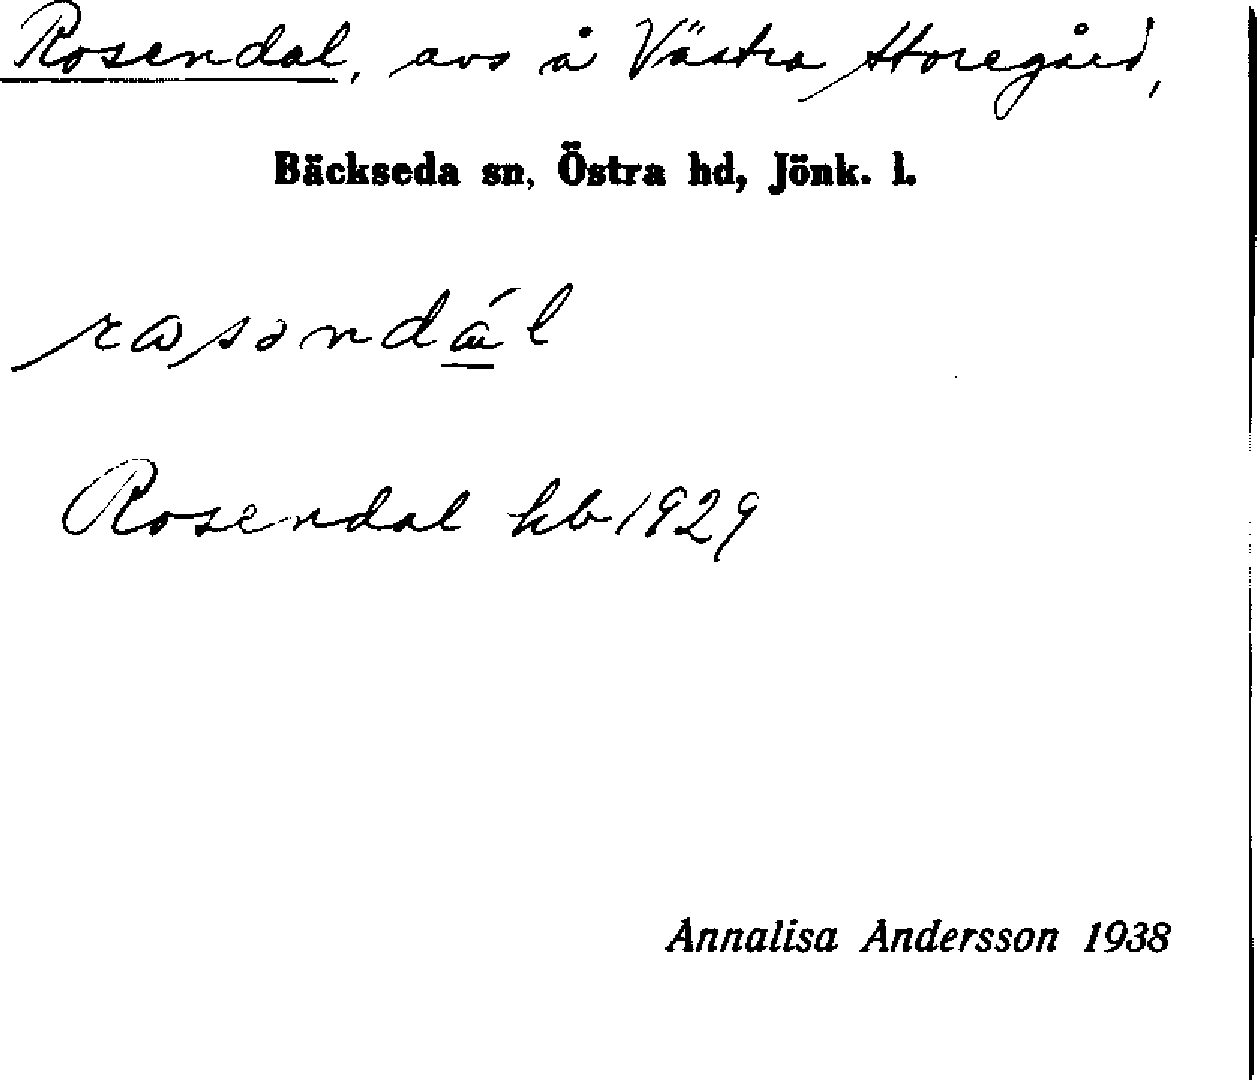 Rosendal, avs å Västra Storegård,
Bäckseda sn, Östra hd, Jönk. l.
Rosendal hb 1929
Annalisa Andersson 1938